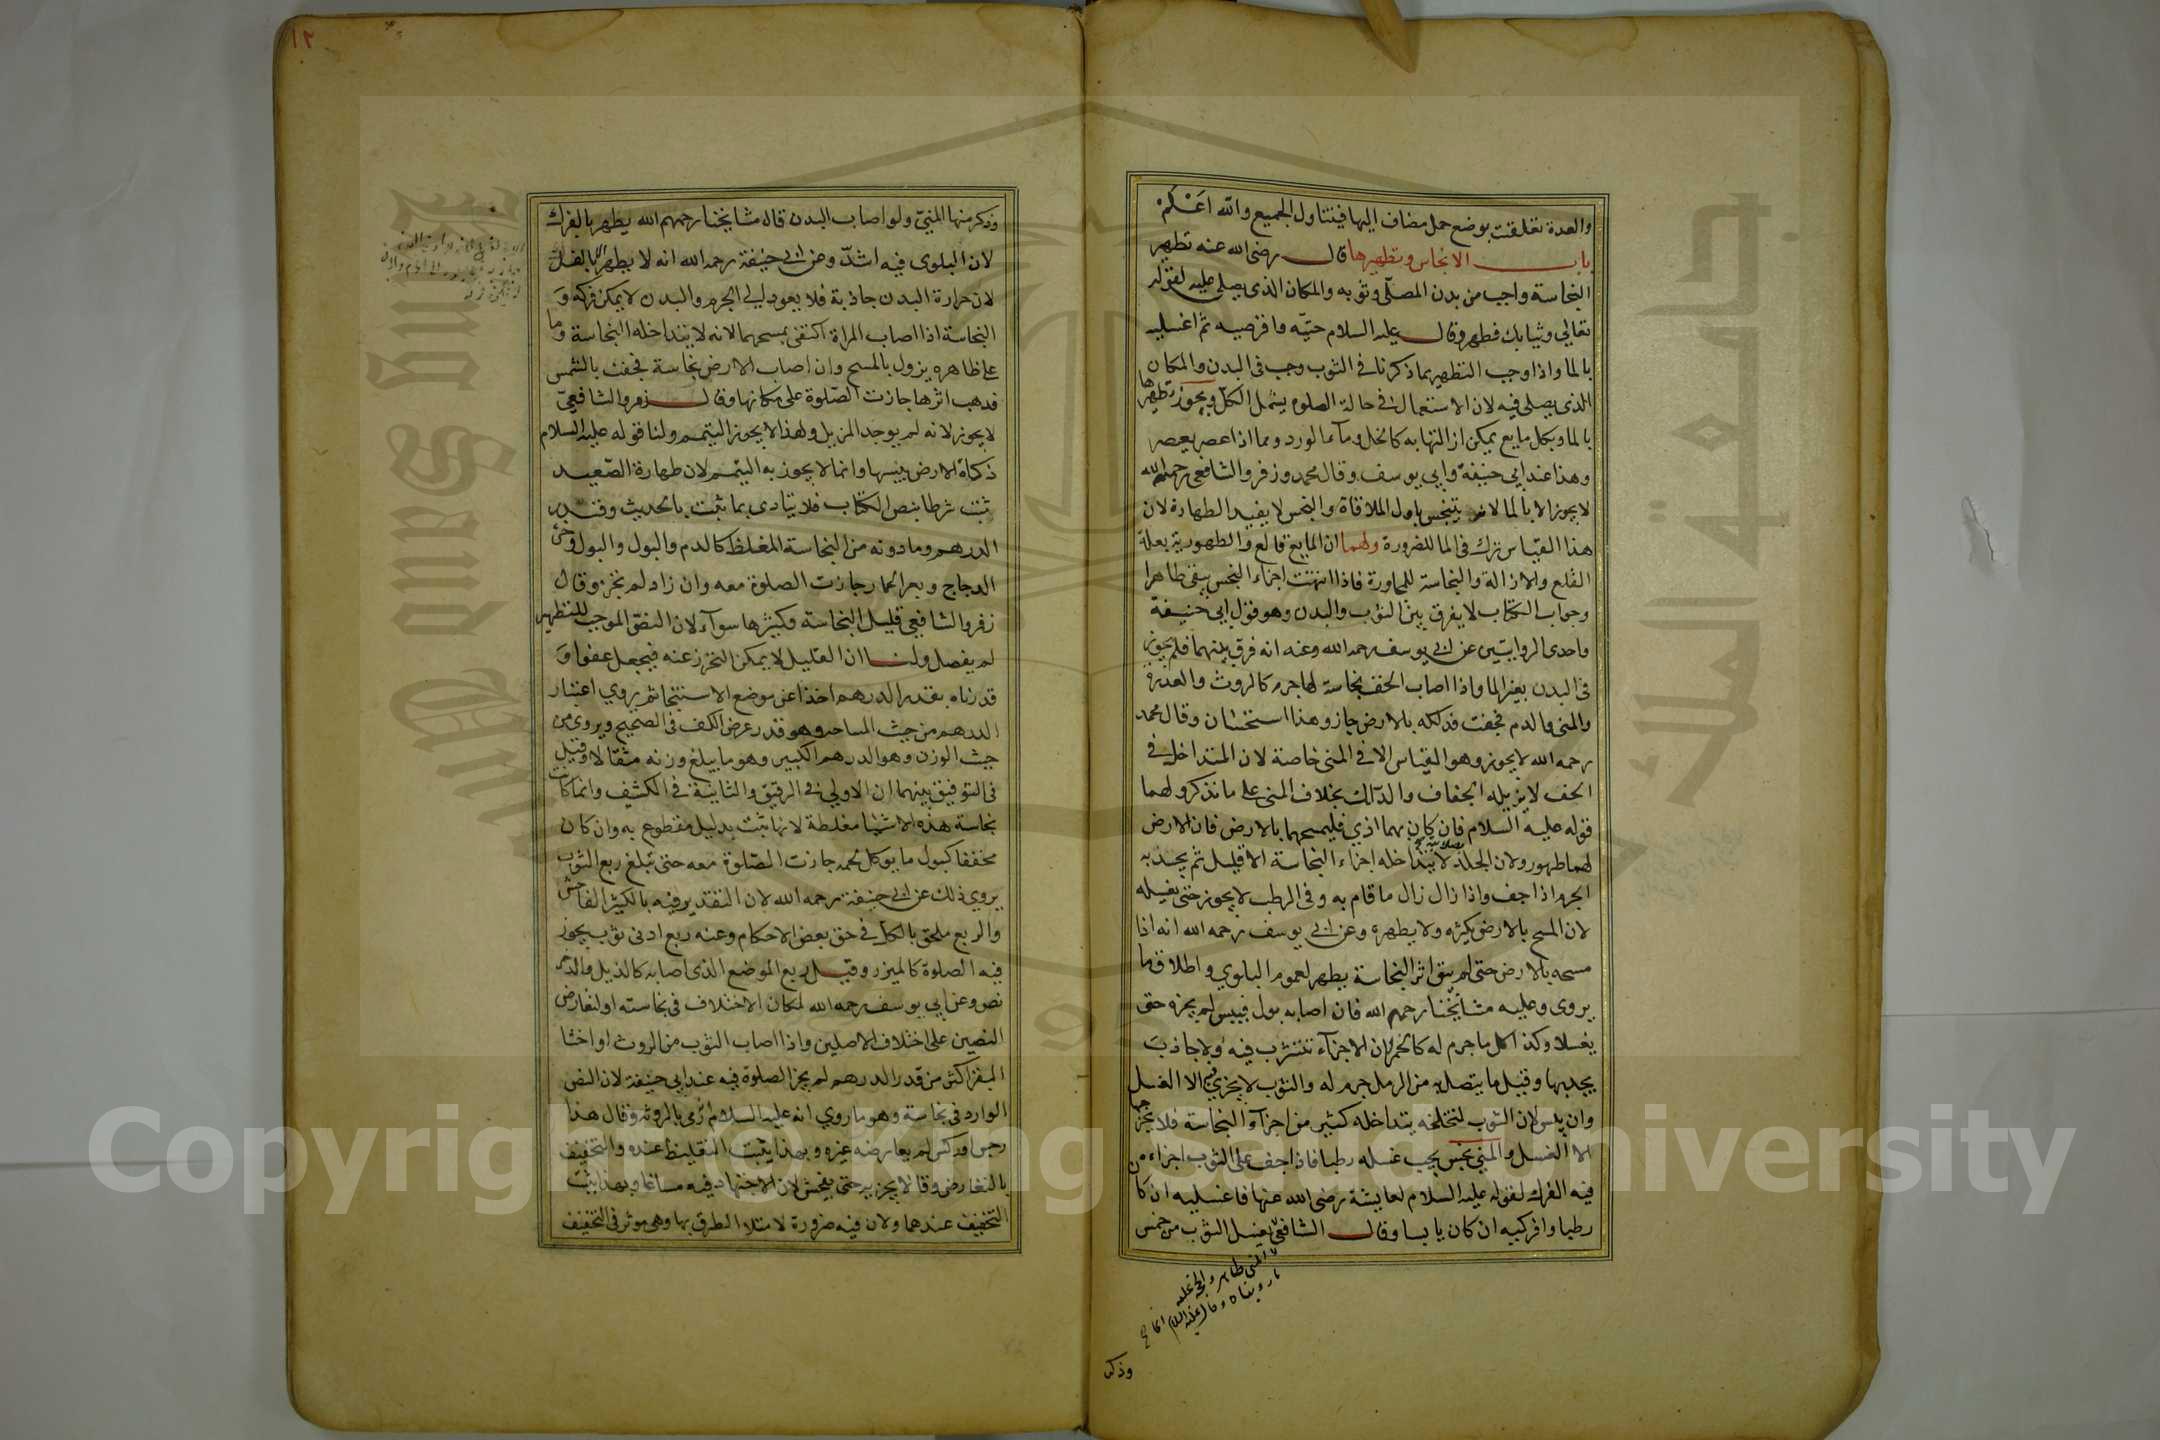 والعدة تعلقت بوضع حمل مضاف اليها فيتناول الجميع والله اعلم
باب الانجاس وتطهيرها قال رضى الله عنه تطهير
النجاسة واجب من بدن المصلّى وثوبه والمكان الذى يصلى عليه لقوله
تعالى وثيابك فطهر وقال عليه السلام حتيّه واقرصيه ثم اغسليه
بالما واذا وجب التطهير بما ذكرنا فى الثوب وجب فى البدن والمكان
الذى يصلى فيه لان الاستعمال فى حالة الصلوه يشمل الكلّ ويجوز تطهيرها
بالما وبكل مايع يمكن ازالتها به كالخل ومآء الورد ومما اذا عصر يعصر
وهذا عند ابى حنيفة وابي يوسف وقال محمد وزفر والشافعى رحمهم الله
لا يجوز الا بالما لانه يتنجس باول الملاقاة والنجس لا يفيد الطهارة لان
هذا القياس ترك فى الما للضرورة ولهما ان المايع قالع والطهورية بعلة
القلع والازالة والنجاسة للمجاورة فاذا انتهت اجزاء النجس يبقى طاهرا
وجواب الكتاب لا يفرق بين الثوب والبدن وهو قول ابي حنيفة
واحدى الروايتين عن ابى يوسف رحمه الله وعنه انه فرق بينهما فلم يجوز
فى البدن بغير الما واذا اصاب الخف نجاسة لها جرم كالروث والعذرة
والمنى والدم فجفت فدلكه بالارض جاز وهذا استحسان وقال محمد
رحمه الله لا يجوز وهو القياس الا فى المنى خاصة لان المتداخل فى
الخف لا يزيله الجفاف والدلك بخلاف المنى على ما نذكر ولهما
قوله عليه السلام فان كان بهما اذي فليمسحهما بالارض فان الارض
لهما طهور ولان الجلد لصلابته لا يتداخله اجزاء النجاسة الا قليل ثم يجذبه
الجرم اذا جف واذا زال زال ما قام به وفى الرطب لا يجوز حتى يغسله
لان المسح بالارض يكثره ولا يطهره وعن ابى يوسف رحمه الله انه اذا
مسحه بالارض حتى لم يبق اثر النجاسة يطهر لعموم البلوي واطلاق ما
يروى وعليه مشايخنا رحمهم الله فان اصابه بول فيبس لم يجزه حتى
يغسله وكذا كل ما جرم له كالخمر لان الاجزآء تتشرب فيه ولا جاذب
يجذبها وقيل ما يتصل به من الرمل جرم له والثوب لا يجزي فيه الا الغسل
وان يبس لان الثوب لتخلخله يتداخله كثير من اجزآء النجاسة فلا يخرجها
الا الغسل والمني نجس يجب غسله رطبا فاذا جف على الثوب اجزاءه
فيه الفرك لقوله عليه السلام لعايشة رضى الله عنها فاغسليه ان كان
رطبا وافركيه ان كان يابسا وقال الشافعى يغسل الثوب من خمس
المنى طاهر والحجة عليه
ما رويناه وقال عليه السلام انما
وذكر
١٢
وذكر منها المنيّ ولو اصاب البدن قال مشايخنا رحمهم الله يطهر بالفرك
لان البلوى فيه اشدّ وعن ابى حنيفة رحمه الله انه لا يطهر الا بالغسل
لان حرارة البدن جاذبة فلا يعود الى الجرم والبدن لا يمكن فركه وَ
النجاسة اذا اصاب المراة اكتفى بمسحهما لانه لا يتداخله النجاسة وما
على ظاهره يزول بالمسح وان اصاب الارض نجاسة فجفت بالشمس
فذهب اثرها جازت الصّلوة على مكانها وقال زفر والشافعيّ
لا يجوز لانه لم يوجد المزيل ولهذا لا يجوز التيمم ولنا قوله عليه السلام
ذكاة الارض يبسها وانما لا يجوز به التيمم لان طهارة الصّعيد
ثبت شرطا بنص الكتاب فلا يتادى بما ثبت بالحديث وقدر
الدرهم وما دونه من النجاسة المغلظ كالدم والبول والبول وخرئ
الدجاج وبعر الحمار جازت الصلوة معه وان زاد لم تجز وقال
زفر والشافعى قليل النجاسة وكثيرها سوآء لان النصّ الموجب للتطهير
لم يفصل ولنا ان القليل لا يمكن التحرز عنه فيجعل عفوا وَ
قدرناه بقدر الدرهم اخذا عن موضع الاستنجا ثم يروي اعتبار
الدرهم من حيث المساحه وهو قدر عرض الكف فى الصحيح ويروى من
حيث الوزن وهو الدرهم الكبير وهو ما يبلغ وزنه مثقالا وقيل
فى التوفيق بينهما ان الاولى فى الرقيق والثانية فى الكثيف وانما كانت
نجاسة هذه الاشيا مغلطة لانها ثبت بدليل مقطوع به وان كان
مخففا كبول ما يوكل لحمه جازت الصّلوة معه حتى تبلغ ربع الثوب
يروي ذلك عن ابى حنيفة رحمه الله لان التقدير فيه بالكثير الفاحش
والربع ملحق بالكلّ فى حق بعض الاحكام وعنه ربع ادنى ثوب يجوز
فيه الصلوة كالميزر وقيل ربع الموضع الذى اصابه كالذيل والدخر
نص وعن ابي يوسف رحمه الله لمكان الاختلاف فى نجاسته او لتعارض
النصين على اختلاف الاصلين واذا اصاب الثوب من الروث او اخثا
البقر اكثر من قدر الدرهم لم يجز الصلوة فيه عند ابي حنيفة لان النص
الوارد فى نجاسة وهو ما روي انه عليه السلام رمى بالروثة وقال هذا
رجس او ركس لم يعارضه غيره وبهذا يثبت التغليظ عنده والتخفيف
بالتعارض وقالا يجزيه حتى يفحش لان الاجتهاد فيه مساغا وبهذا يثبت
التخفيف عندهما ولان فيه ضرورة لامتلا الطرق بها وهى موثر فى التخفيف
King Saud University
جامعة الملك سعود
Copyright © King Saud University